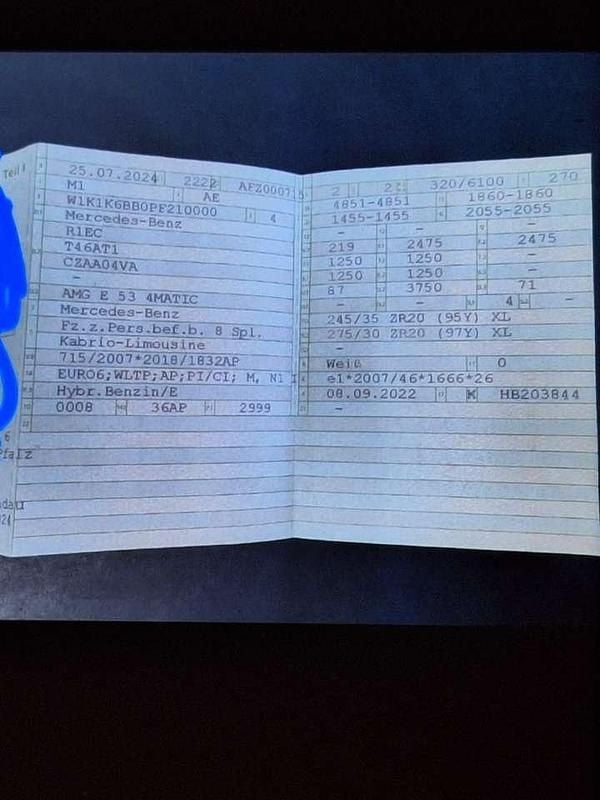 Teil I
25.07.2024 2222 AFZ0007
M1 AE
W1K1K6BB0PF210000 4
Mercedes-Benz
R1EC
T46AT1
CZAA04VA
–
AMG E 53 4MATIC
Mercedes-Benz
Fz.z.Pers.bef.b. 8 Spl.
Kabrio-Limousine
715/2007*2018/1832AP
EURO6;WLTP;AP;PI/CI; M, N1 I
Hybr.Benzin/E
0008 36AP 2999
6
Pfalz
ndau
24
2 2 320/6100 270
4851-4851 1860-1860
1455-1455 2055-2055
– – –
219 2475 2475
1250 1250 –
1250 1250 –
87 3750 71
– – 4 –
245/35 ZR20 (95Y) XL
275/30 ZR20 (97Y) XL
–
Weiß 0
e1*2007/46*1666*26
08.09.2022 K HB203844
–